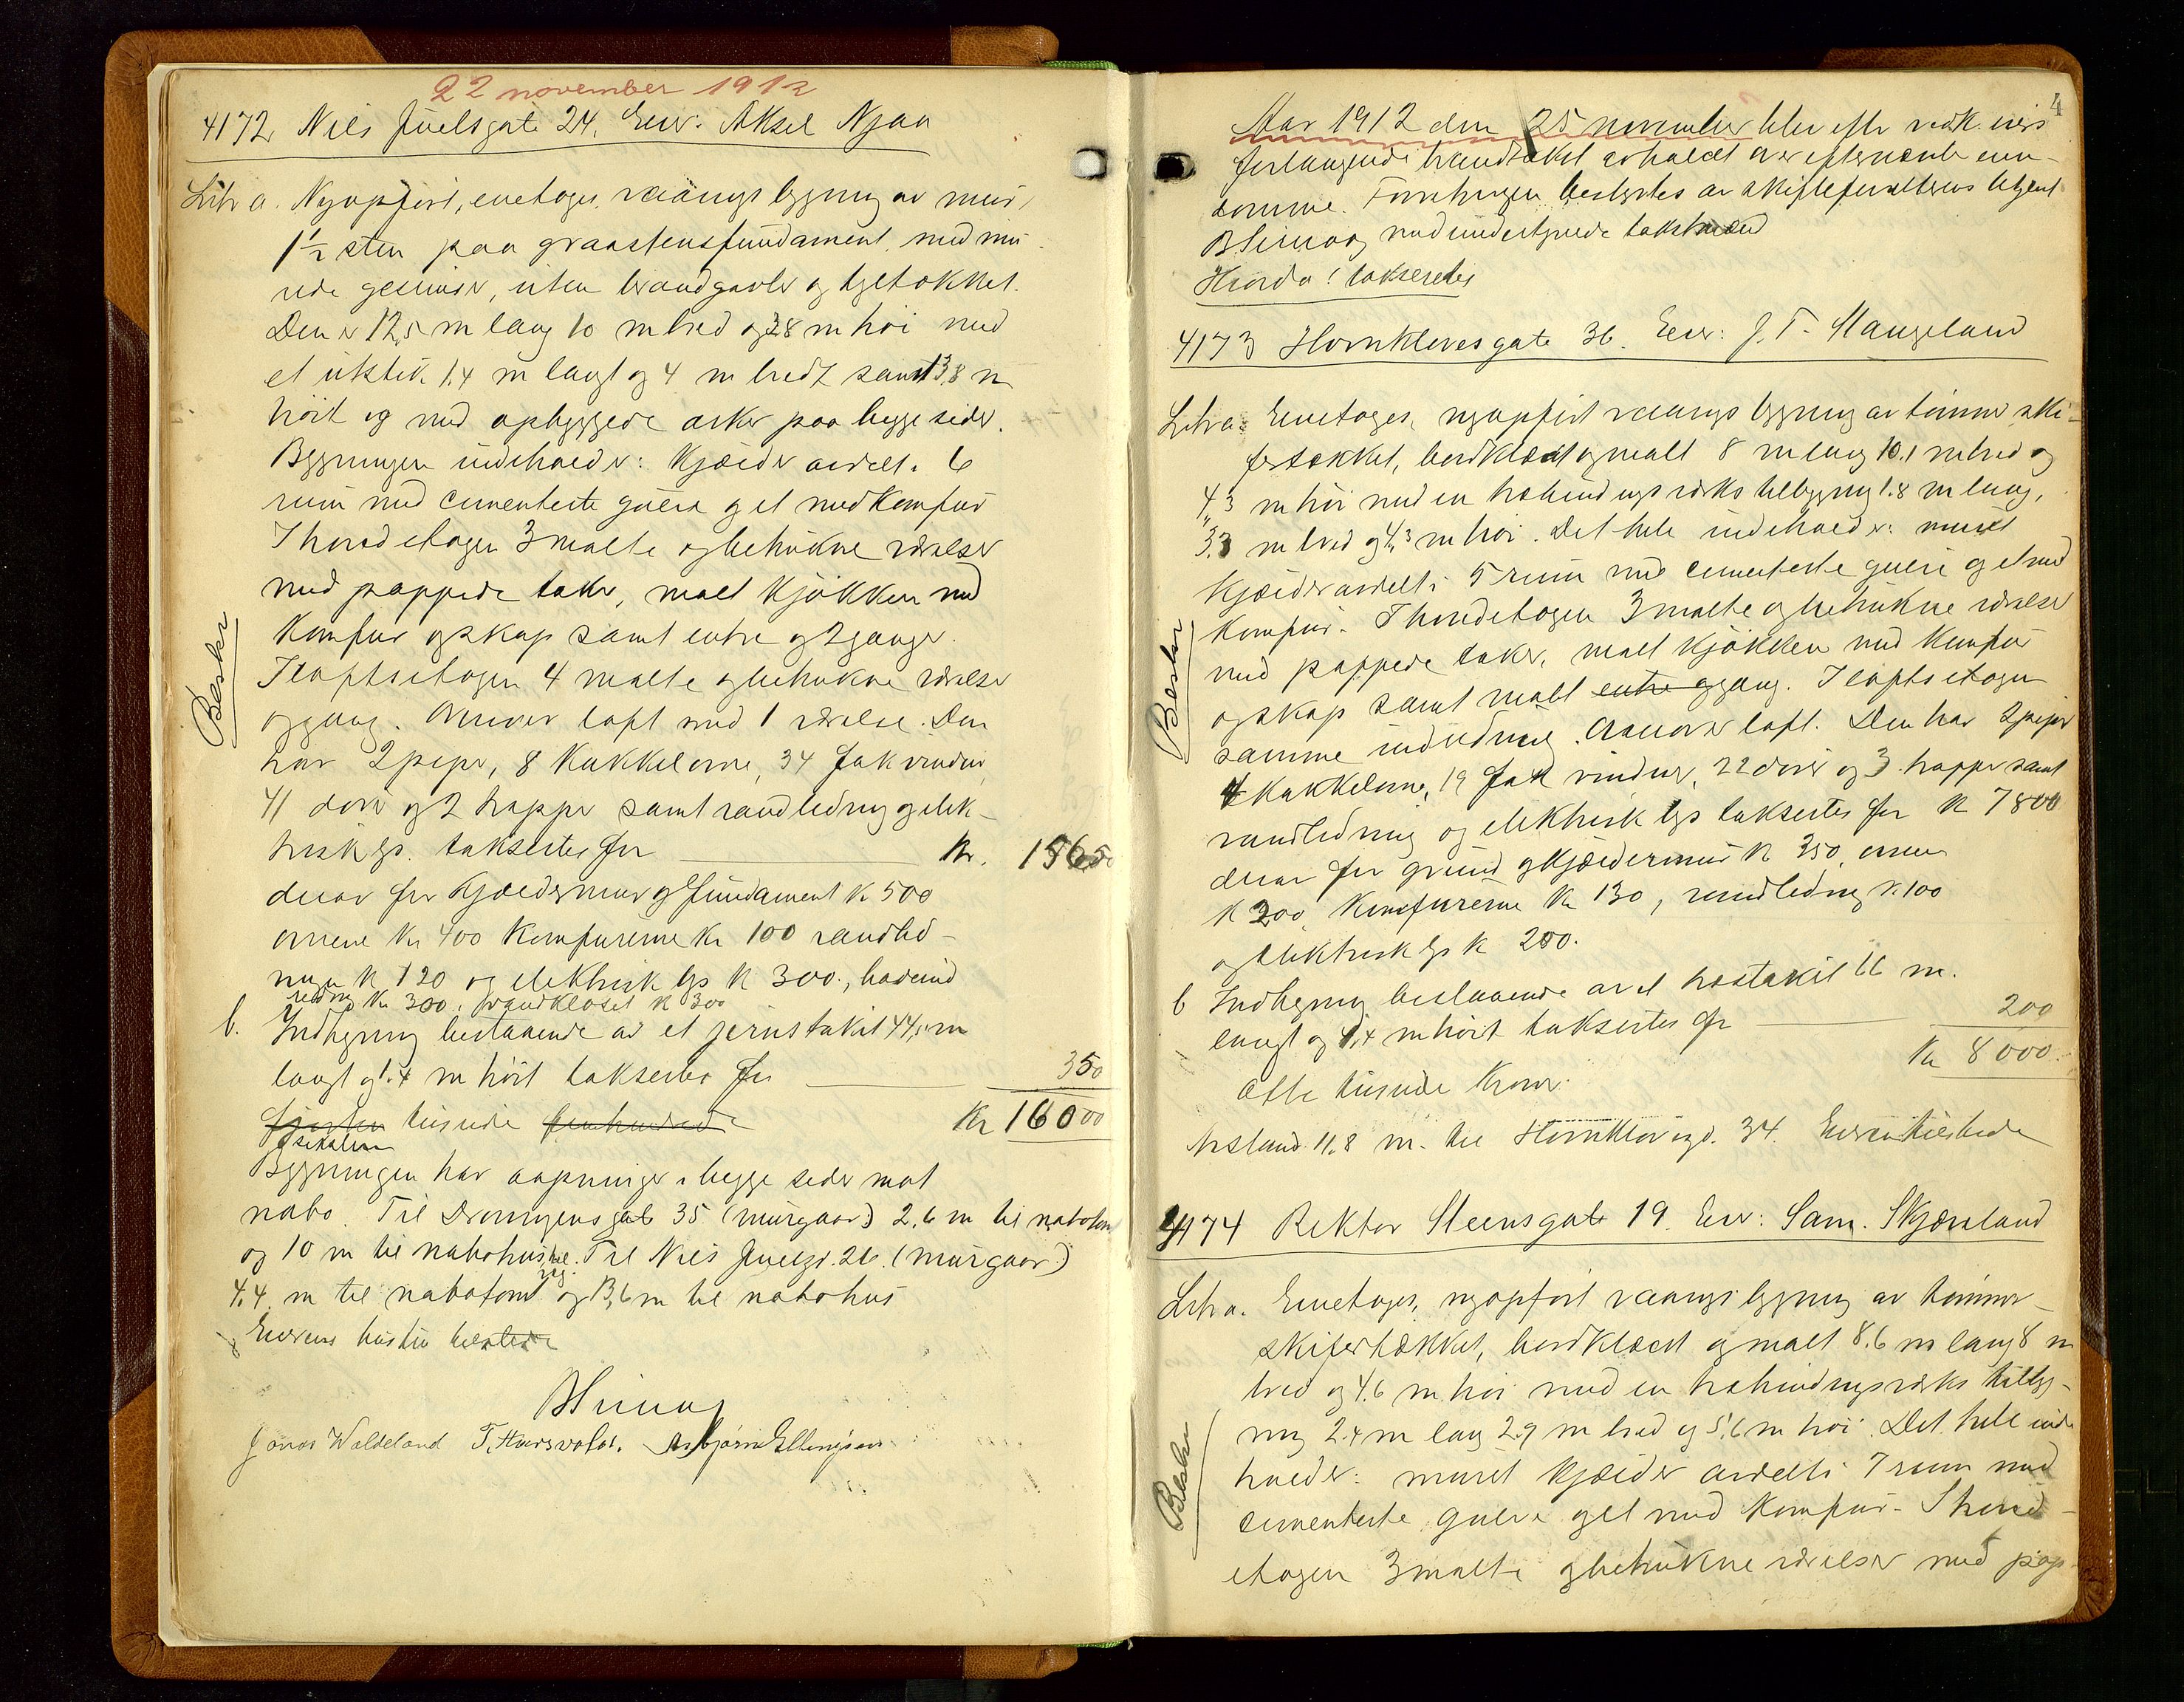 22 november 1912
4172 Niels Juelsgate 24. Eier: Aksel Njaa
Litr a. Nyopført, enetages vaaningsbygning av mur,
1½ sten paa graastensfundament med mu-
rede gesimser, uten brandgavler og tegltækket.
Den er 12,5 m lang 10 m bred og 7,8 m høi med
et utstik 1,4 m langt og 4 m bredt samt 3,8 m
høit og med opbyggede arker paa begge sider.
Bygningen indeholder: Kjælder avdelt i 6
rum med cementerte gulve og et med komfur
I hovedetagen 3 malte og betrukne værelser
med pappede taker, malt kjøkken med
komfur og skap samt entre og 2 ganger.
I loftsetagen 4 malte og betrukne værelser
og gang. Ovenover loft med 1 værelse. Den
har 2 piper, 8 kakkelovne, 34 fak vinduer,
41 dører og 2 trapper samt vandledning og elek-
trisk lys. taksertes for Kr. 15650
derav for kjældermur og fundament Kr 500
ovnene Kr 400 komfurerne Kr 100 vandled-
ningen K 120 og elektrisk lys K 300., badeind
redning Kr 300, vandkloset K 300
b. Indhegning bestaaende av et jernstakit 44,5 m
langt og 1.4 m høit taksertes for 350
femten tusinde femhundrede Kr 16000
seksten
Bygningen har aapninger i begge sider mot
nabo. Til Dronningensgate 35 (murgaar) 2,6 m til nabotom
og 10 m til nabohus. Til Niels Juelsgt. 26. (murgaar)
4.4 m til nabotomt og 13,6 m til nabohus
Eierens hustru tilstede
B Simers
Jonas Waldeland T. Haarsvoldr. Asbjørn Ellingsen
Beskr
4
Aar 1912 den 25 november blev efter vedk. eiers
forlangende brandtakst avholdt over efternævnte eien-
domme. Forretningen bestyrtes av skifteforvalterens betjent
B. Simers og med undertegnede takstmænd
Hvorda! taksertes
4173 Hornklovesgate 36. Eier: J. T. Stangeland
Litr a. Enetages, nyopført vaaningsbygning av tømmer, ski-
fertækket, bordklædt og malt 8 m lang 10.1 m bred og
4,3 m høi med en utbindingsverks tilbygning 1.8 m lang,
3.3 m bred og 4,3 m høi. Det hele indeholder: muret
kjælder avdelt i 5 rum med cementerte gulve og et med
komfur. I hovedetagen 3 malte og betrukne værelser
med pappede taker, malt kjøkken med komfur
og skap samt malt entre og gang. I loftsetagen
samme indredning. Ovenover loft. Den har 2 piper
4 kakkelovne, 19 fak vinduer, 22 dører og 3 trapper samt
vandledning og elektrisk lys taksertes for K 7800
derav for grund og kjældermur K 350, ovnen
K 200, komfurerne Kr 130, vandledning K 100
og elektrisk lys K 200.
b Indhegning bestaaende av et træstakit 66 m.
langt og 1,4 m høit taksertes for 200
Kr 8000.
Otte tusinde kroner.
Avstand 11.8 m. til Hornklovesgd. 34. Eieren tilstede
Beskr
4174 Rektor Steensgate 19. Eier: Sam. Skjæveland
Litr a. Enetages, nyopført vaaningsbygning av tømmer
skifertækket, bordklædt og malt 8.6 m lang 8 m
bred og 4.6 m høi med en utbindingsverks tilbyg-
ning 2.4 m lang 2.9 m bred og 5,6 m høi. Det hele inde
holder: muret kjælder avdelt i 7 rum med
cementerte gulve og et med komfur. I hoved-
etagen 3 malte og betrukne værelser med pap-
Beskr